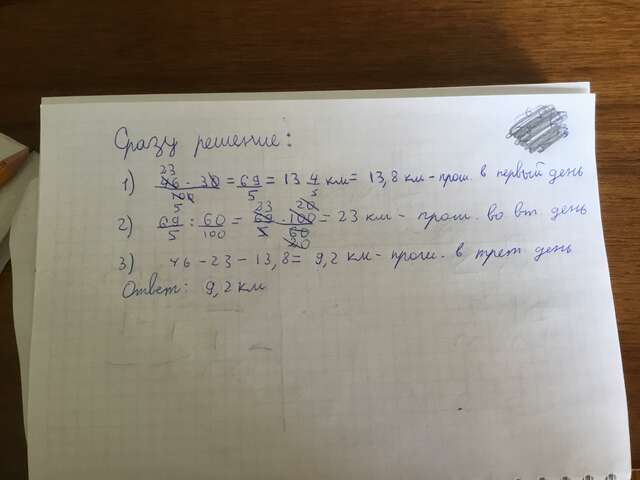 Сразу решение:
1) 46 · 30 / 100 = 69/5 = 13 4/5 км = 13,8 км - прош. в первый день
2) 69/5 : 60/100 = 69 · 100 / 5 · 60 = 23 км - прош. во вт. день
3) 46 - 23 - 13,8 = 9,2 км - прош. в трет. день
Ответ: 9,2 км